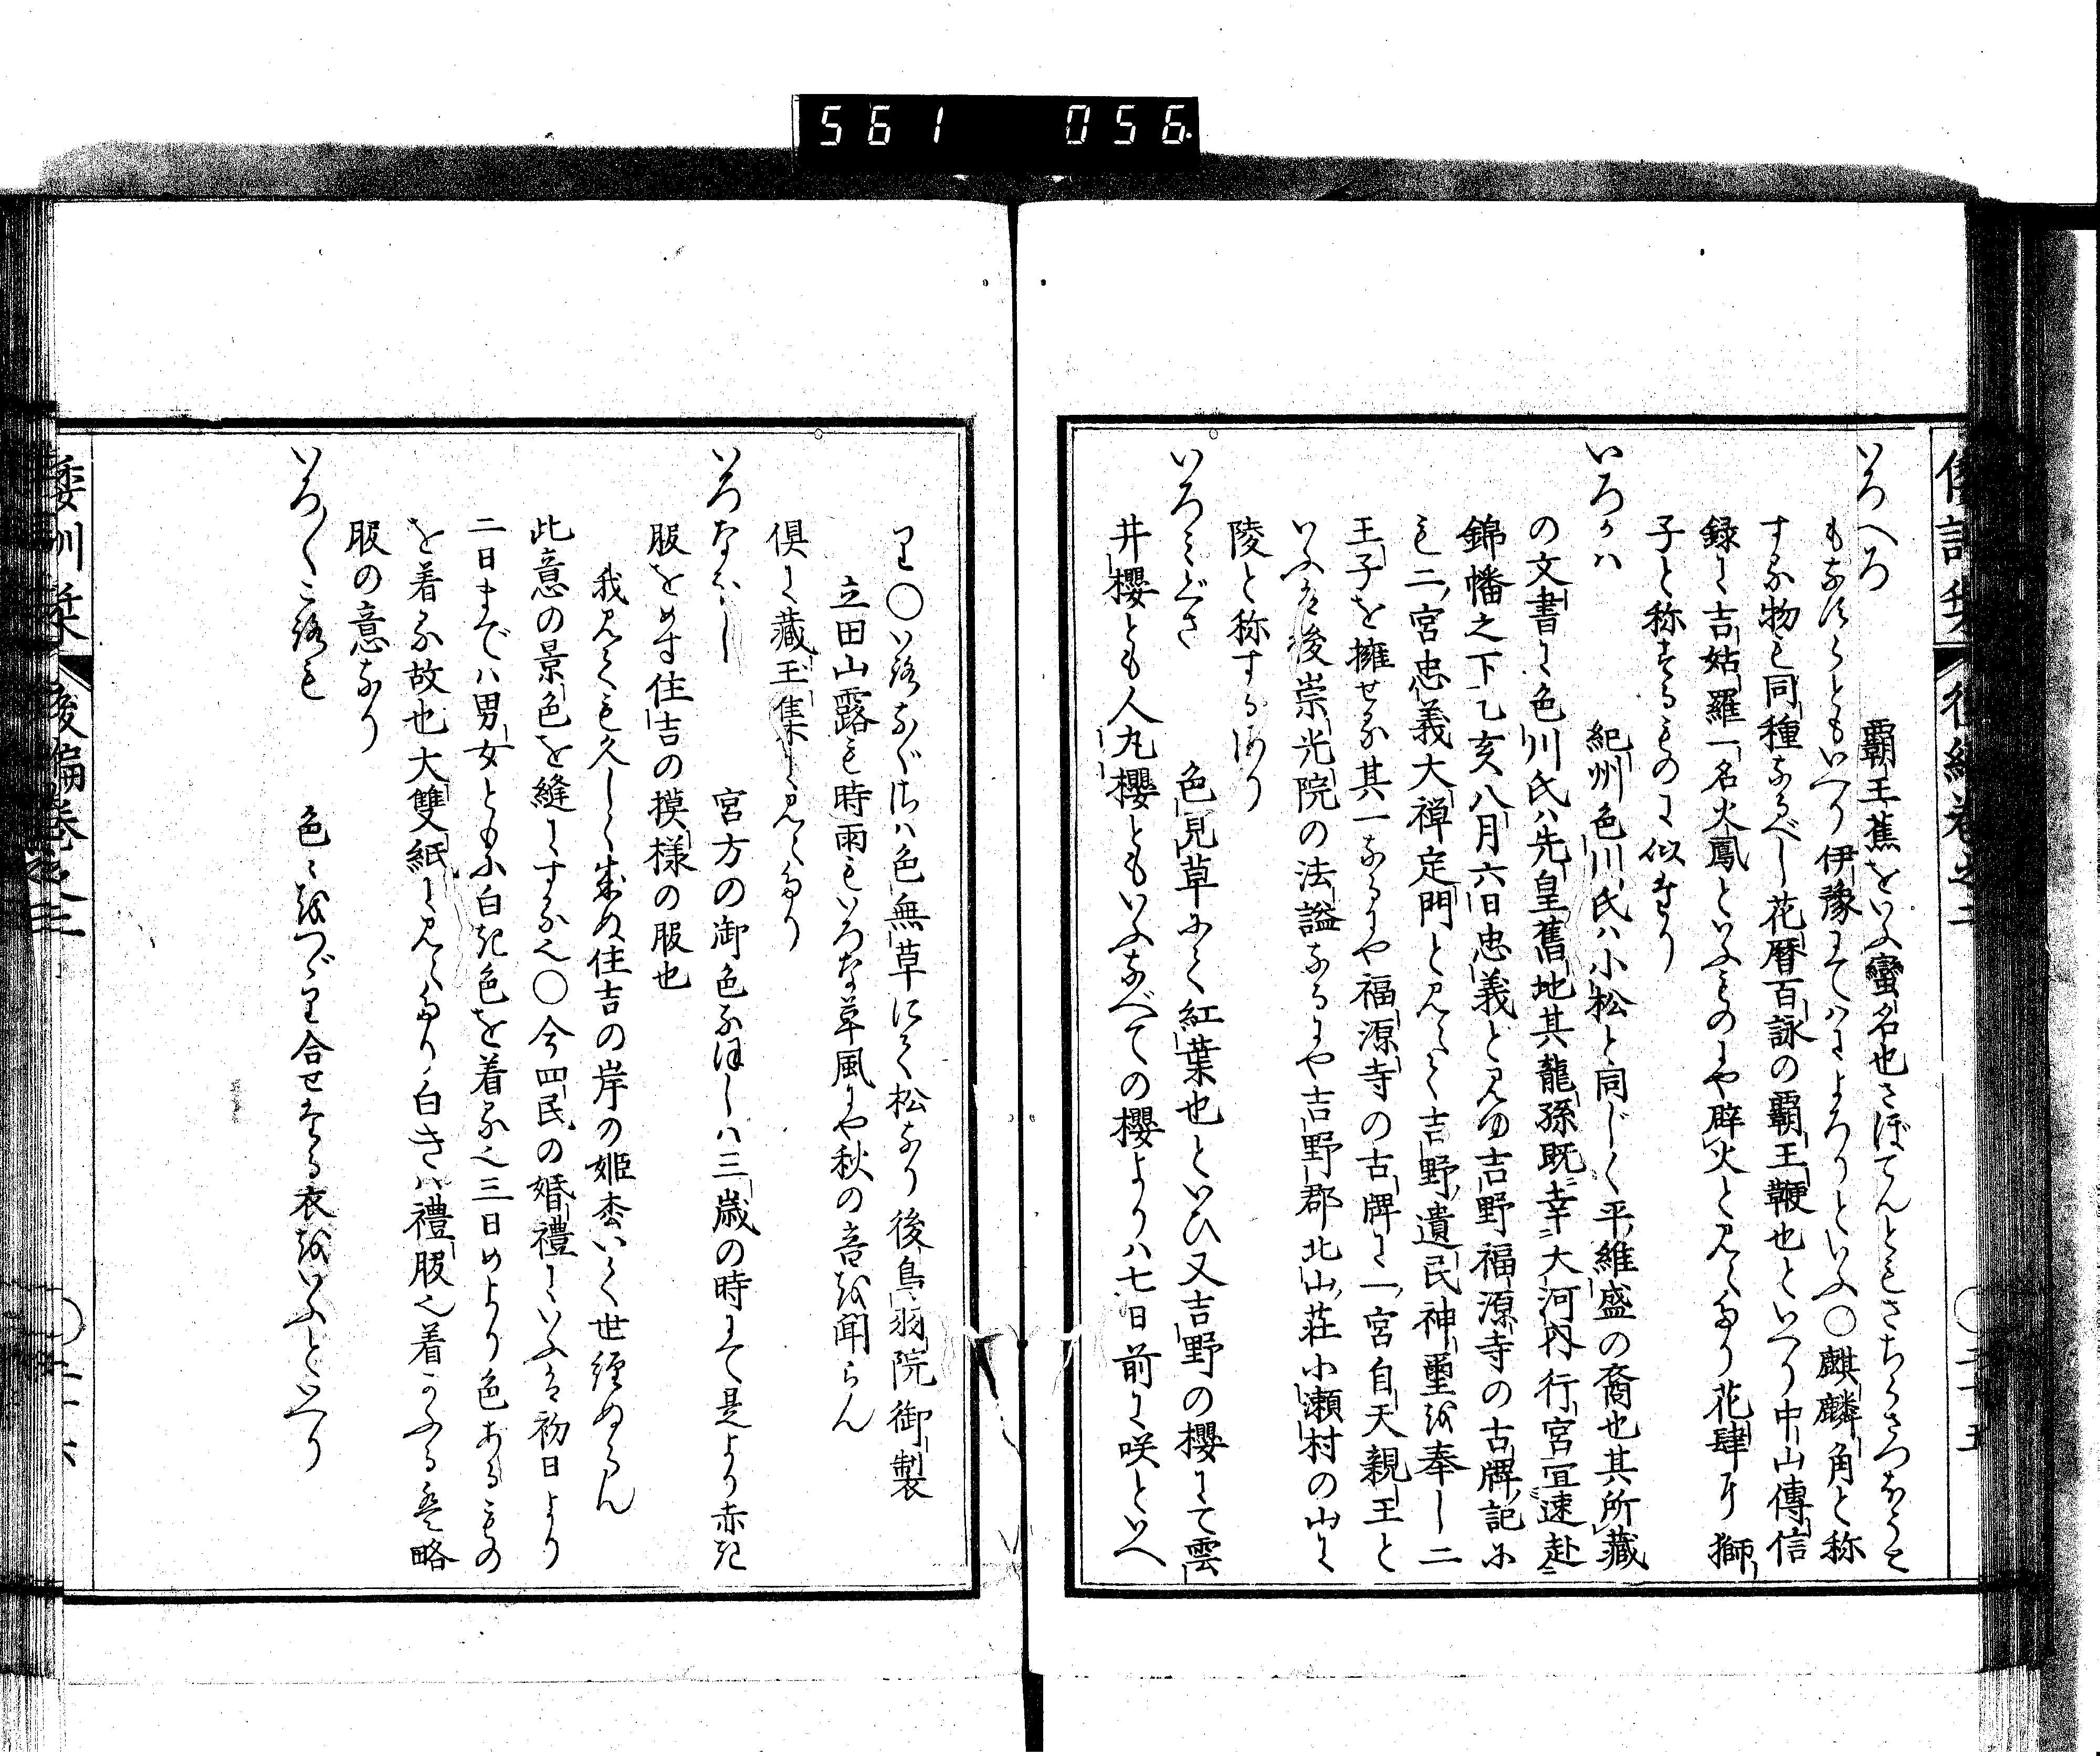 561 056
いろへろ 覇王蕉をいふ蠻名也さぼてんともさちらさつほうて
もなにらともいへり伊豫にてハによろりといふ〇麒麟角と称
する物も同種なるべし花暦百詠の覇王鞭也といへり中山傳信
録に吉姑羅一名火鳳といふものにや辟火と見えたり花肆に獅
子と称するものに似たり
いろかハ 紀州色川氏ハ小松と同じく平維盛の裔也其所藏
の文書に色川氏ハ先皇舊地其龍孫既幸大河内行宮宜速赴
錦幡之下乙亥八月六日忠義と見ゆ吉野福源寺の古牌記に
も二宮忠義大禅定門と見えて吉野遺民神璽を奉し二
王子を擁せる其一なるにや福源寺の古牌に一宮自天親王と
いふは後崇光院の法謚なるにや吉野郡北山荘小瀬村の山に
陵と称するあり
いろみぐさ 色見草にて紅葉也といひ又吉野の櫻にて雲
井櫻とも人丸櫻ともいふなべての櫻より八七日前に咲といへ
り〇いろなぐさハ色無草にて松なり後鳥羽院御製
立田山露も時雨もいろな草風にや秋の音を聞らん
倶に藏玉集に見えたり
いろなほし 宮方の御色なほしハ三歳の時にて是より赤き
服をめす住吉の摸様の服也
我見ても久しく成ぬ住吉の岸の姫松いく世經ぬらん
此意の景色を縫にする也〇今四民の婚禮にいふは初日より
二日までハ男女ともに白き色を着る也三日めより色あるもの
を着る故也大雙紙に見えたり白きハ禮服也着かふるは略
服の意なり
いろ〱ころも 色々をつゞり合せたる衣をいふといへり
倭訓栞 後編巻之二